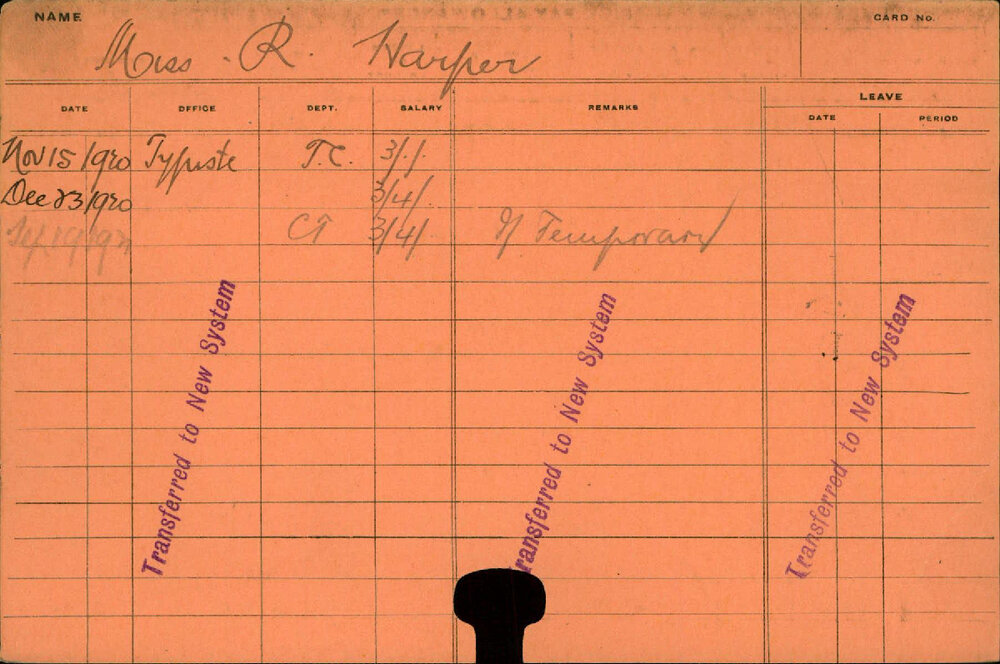 NAME
CARD No.
Miss R. Harper
DATE OFFICE DEPT. SALARY REMARKS LEAVE
DATE PERIOD
Nov 15/1920 Typiste T.C. 3/./.
Dec 23/1920 3/4/
CT 3/4/ Temporary
Transferred to New System
Transferred to New System
Transferred to New System